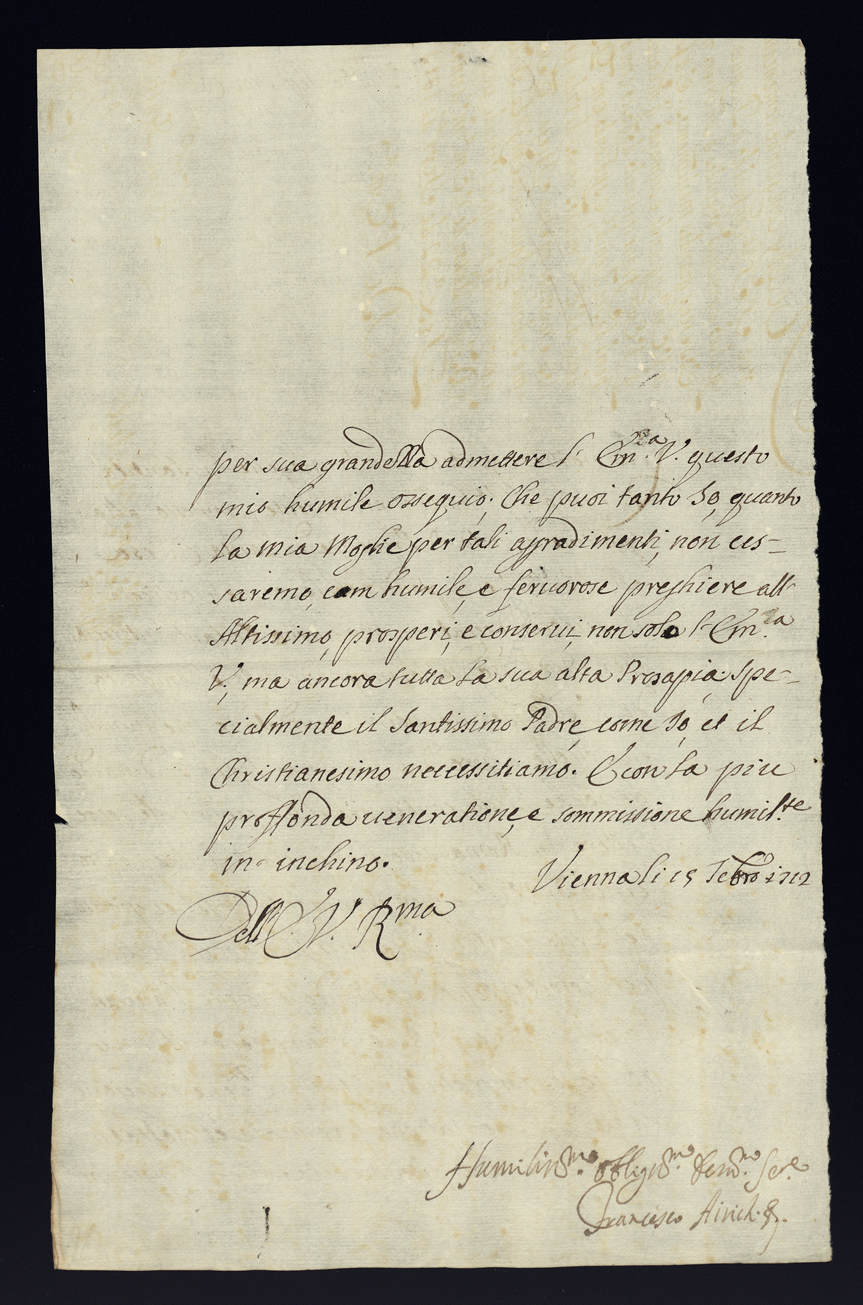 per sua grandezza admettere l' Em.za V. questo
mio humile ossequio; Che puoi tanto Io, quanto
La mia Moglie per tali aggradimenti, non ces-
saremo, com humile, e feruorose preghiere all'
Altissimo, prosperi, e conserui, non solo l' Em.za
V., ma ancora tutta La sua alta Prosapia, spe-
cialmente il Santissimo Padre, come Io, et il
Christianesimo necessitiamo. E con La piu
proffonda ueneratione, e sommissione humil.te
in- inchino.
Vienna li 15 Febro 1712
Dell' E. V. Rma
Humiliss.mo obligss.mo deuo.mo Ser.e
Francesco